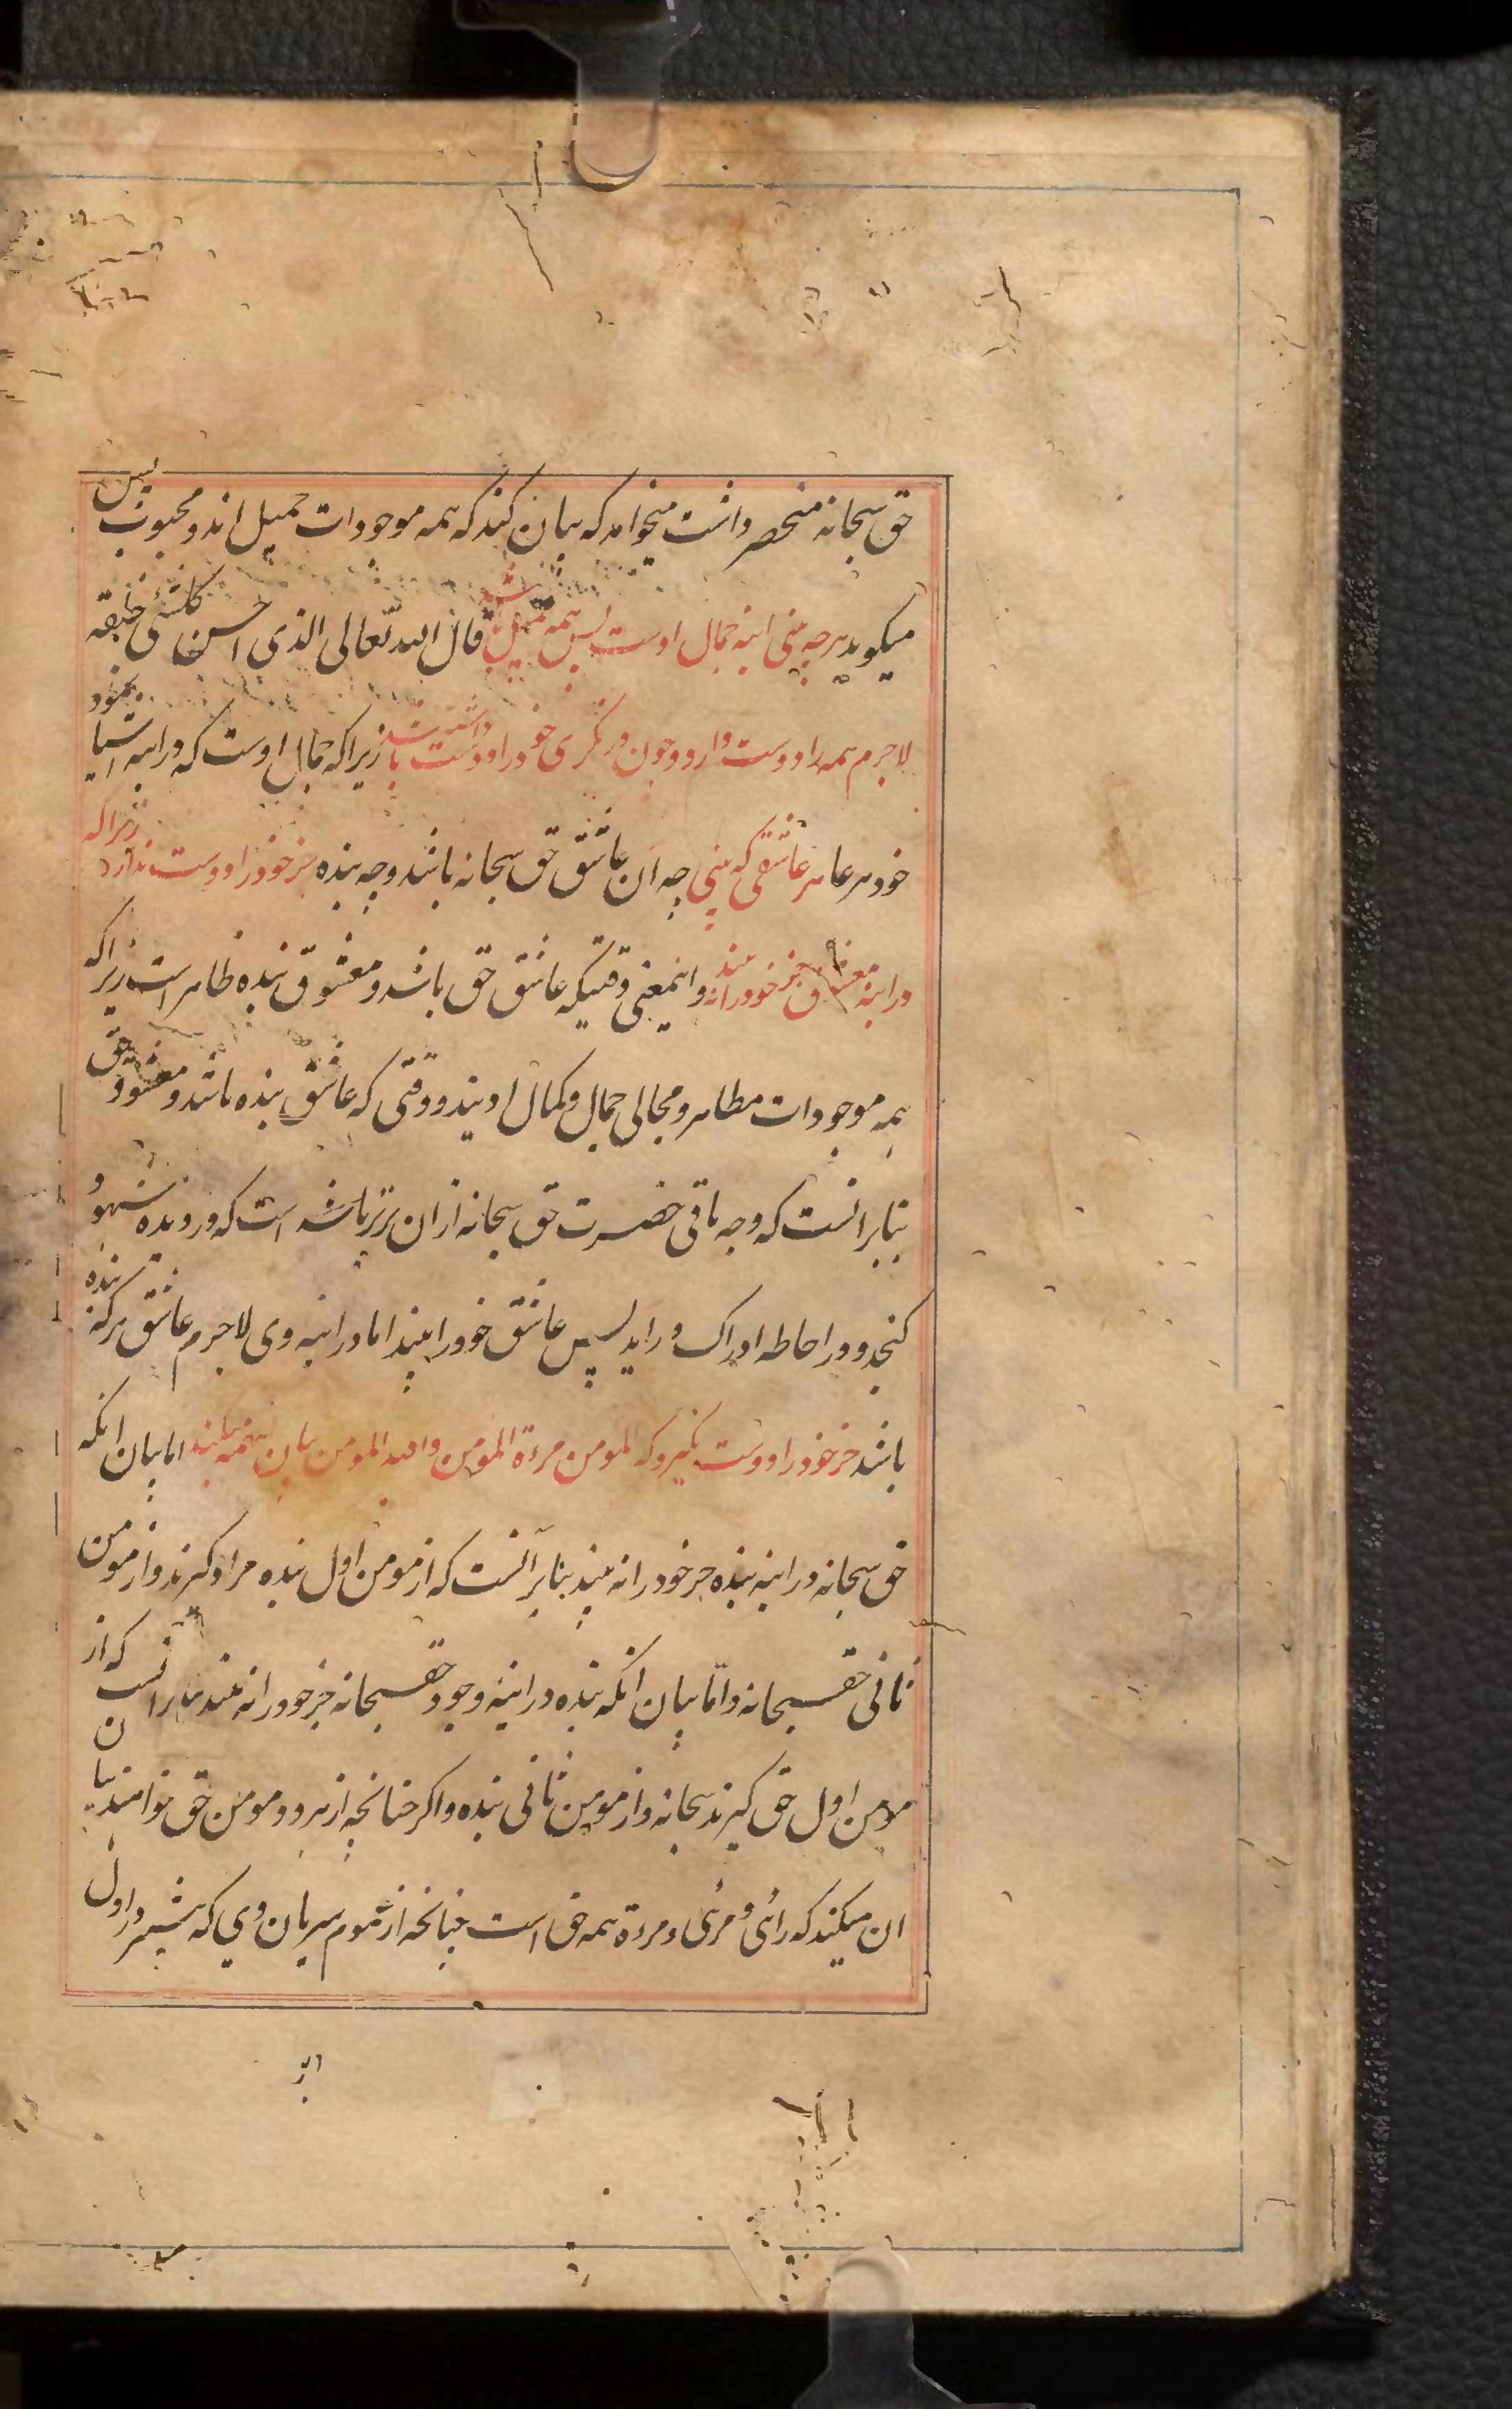 حق سبحانه منحصر داشت میخواهد که بیان کند که همه موجودات جمیل اند و محبوب پس
میکوید هرچه بینی اینه جمال اوست پس همه جمیل باشد قال الله تعالی الذی احسن کل شئی خلقه
لاجرم همه را دوست دارد و چون در نگری خود را دوست داشته باشد زیرا که جمال اوست که در اینه اشیا نموده
خود هر عاهر عاشقی که بینی چه ان عاشق حق سبحانه باشد و چه بنده جز خود را دوست ندارد زیرا که
در اینه معشوق جز خود را نه بیند و اینمعنی وقتیکه عاشق حق باشد و معشوق بنده ظاهر است زیرا که
همه موجودات مظاهر و مجالی جمال و کمال اویند و وقتی که عاشق بنده باشد و معشوق حق
بنابر انست که وجه باقی حضرت حق سبحانه از ان برتر باشد است که در دیده شهود
کنجد و در احاطه ادراک در اید پس عاشق خود را بیند اما در اینه وی لاجرم عاشق هر که بنده
باشد جز خود را دوست نگیرد که المومن مرءة المومن والله المومن بیان اینهمه میکند اما بیان انکه
حق سبحانه در اینه بنده جز خود را نه بیند بنابر آنست که از مومن اول بنده مراد کیرند و از مومن
ثانی حق سبحانه و اما بیان انکه بنده در اینه وجود حق سبحانه جز خود را نه بیند بنابر انست که از
مومن اول حق کیرند سبحانه و از مومن ثانی بنده و اکر چنانچه از هر دو مومن حق خواهند بیان
ان میکند که رائی و مرئی و مرءة همه حق است چنانچه از عموم سریان وی که بیشتر در اول